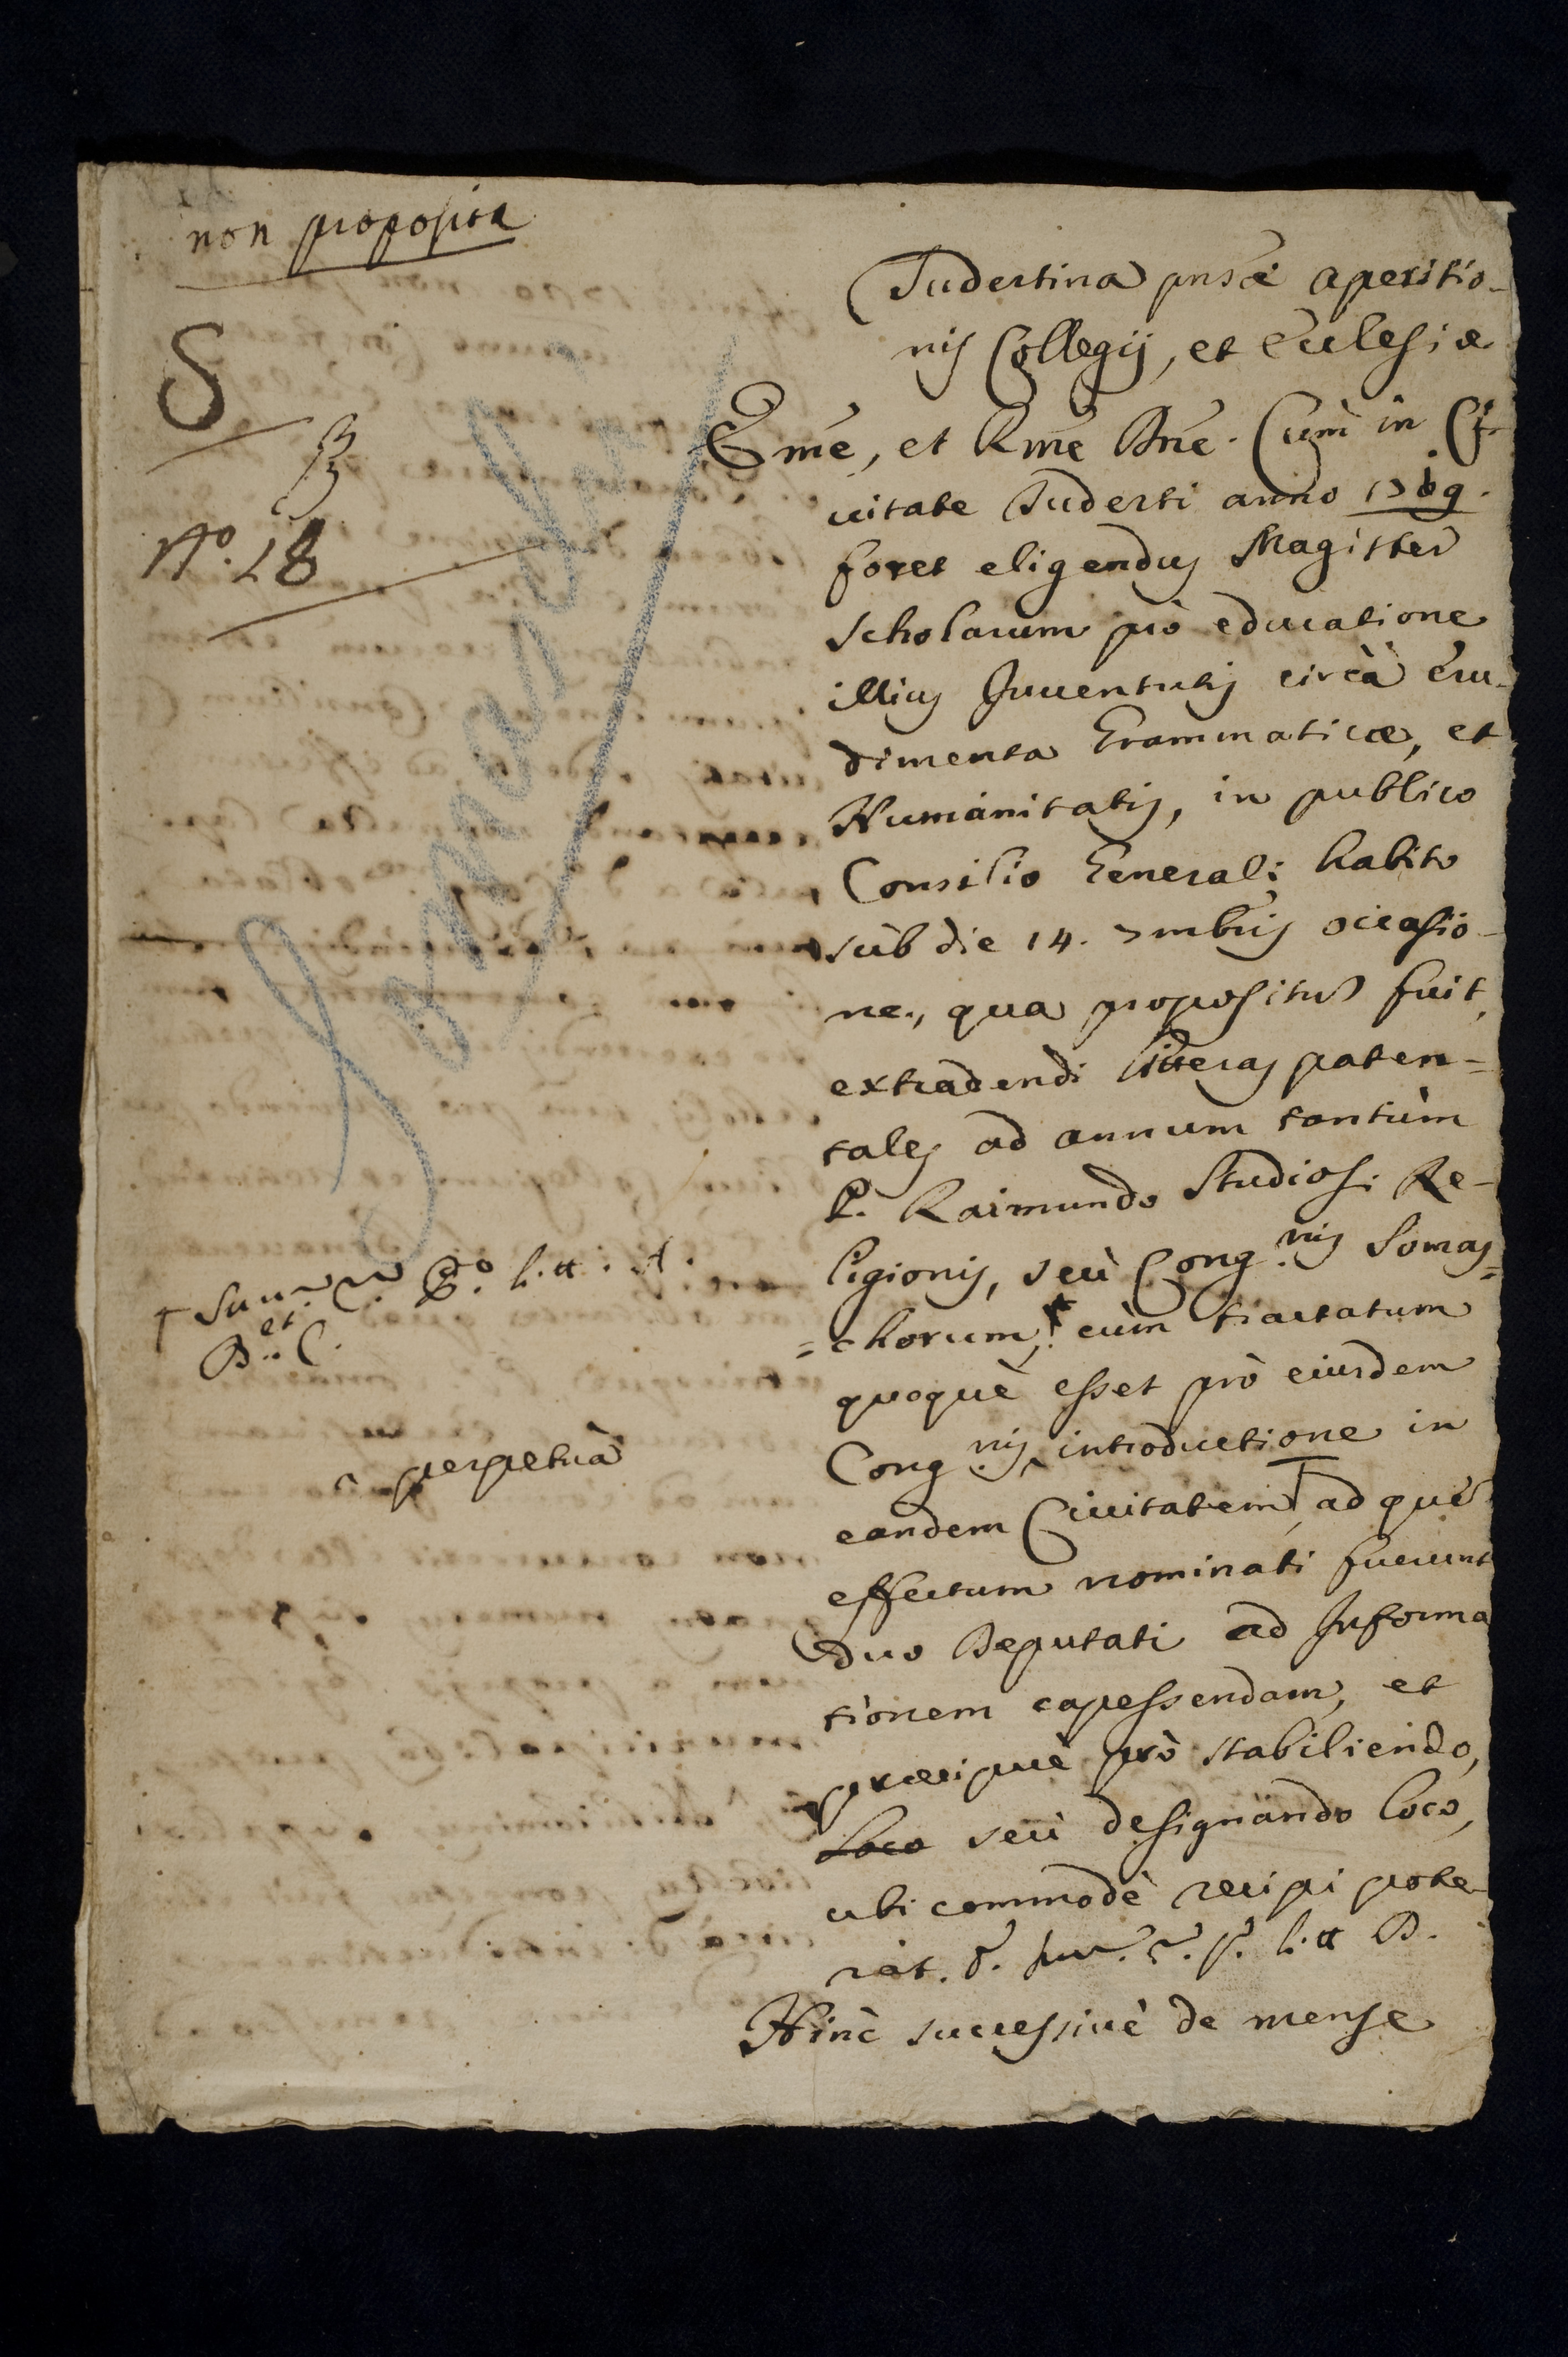 non proposita
S
B
N.º 18
Somaschi
Tudertina pnsæ aperitio-
nis Collegij, et Ecclesiæ
Eme, et Rme Dne. Cum in Ci-
uitate Tuderti anno 1709.
foret eligendus Magister
scholarum prò educatione
illius Juuentutis circà Eru-
dimenta Grammaticæ, et
Humanitatis, in publico
Consilio Generali habito
sùb die 14. 7mbris occasio-
ne, qua propositus fuit,
extradendi litteras paten=
tales ad annum tantùm
P. Raimundo Studiosi Re-
ligionis, seù Cong.nis Somas=
=chorum, cùm tractatum
quoquè esset prò eiusdem
Cong.nis introductione in
eandem Ciuitatem, ad què
effectum nominati fuerunt
duo Deputati ad Informa
tionem capessendam, et
præcipuè prò stabiliendo,
Loco seù designando loco,
ubi commodè recipi pote-
rat. litt B.
Hinc successiuè de mense
litt: A.
et
B. C.
perpetuà